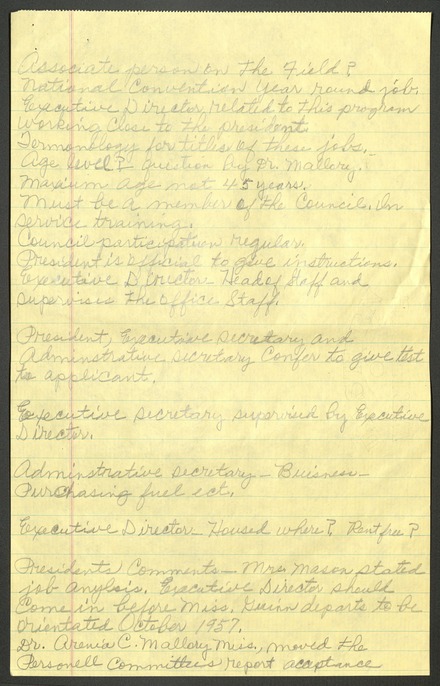 Associate person on the Field?
National Convention year round job.
Executive Director, related to this program
working close to the president.
Termonology for titles of these jobs.
Age level? question by Dr. Mallory.
Maxium age not 45 years.
Must be a member of the Council. In
service training.
Council participation regular.
President is official to give instructions.
Executive Director Head of Staff and
supervises the office Staff.
President, Executive secretary and
Adminstrative secretary Confer to give test
to applicant.
Executive secretary supervised by Executive
Director.
Adminstrative secretary - Buisness -
Purchasing fuel ect.
Executive Director - Housed where? Rent free?
Presidents Comments - Mrs. Mason stated
job anylsis. Executive Director should
Come in before Miss. Guinn departs to be
orientated October 1957.
Dr. Arenia C. Mallory Miss., moved the
Personell Committee's report acceptance